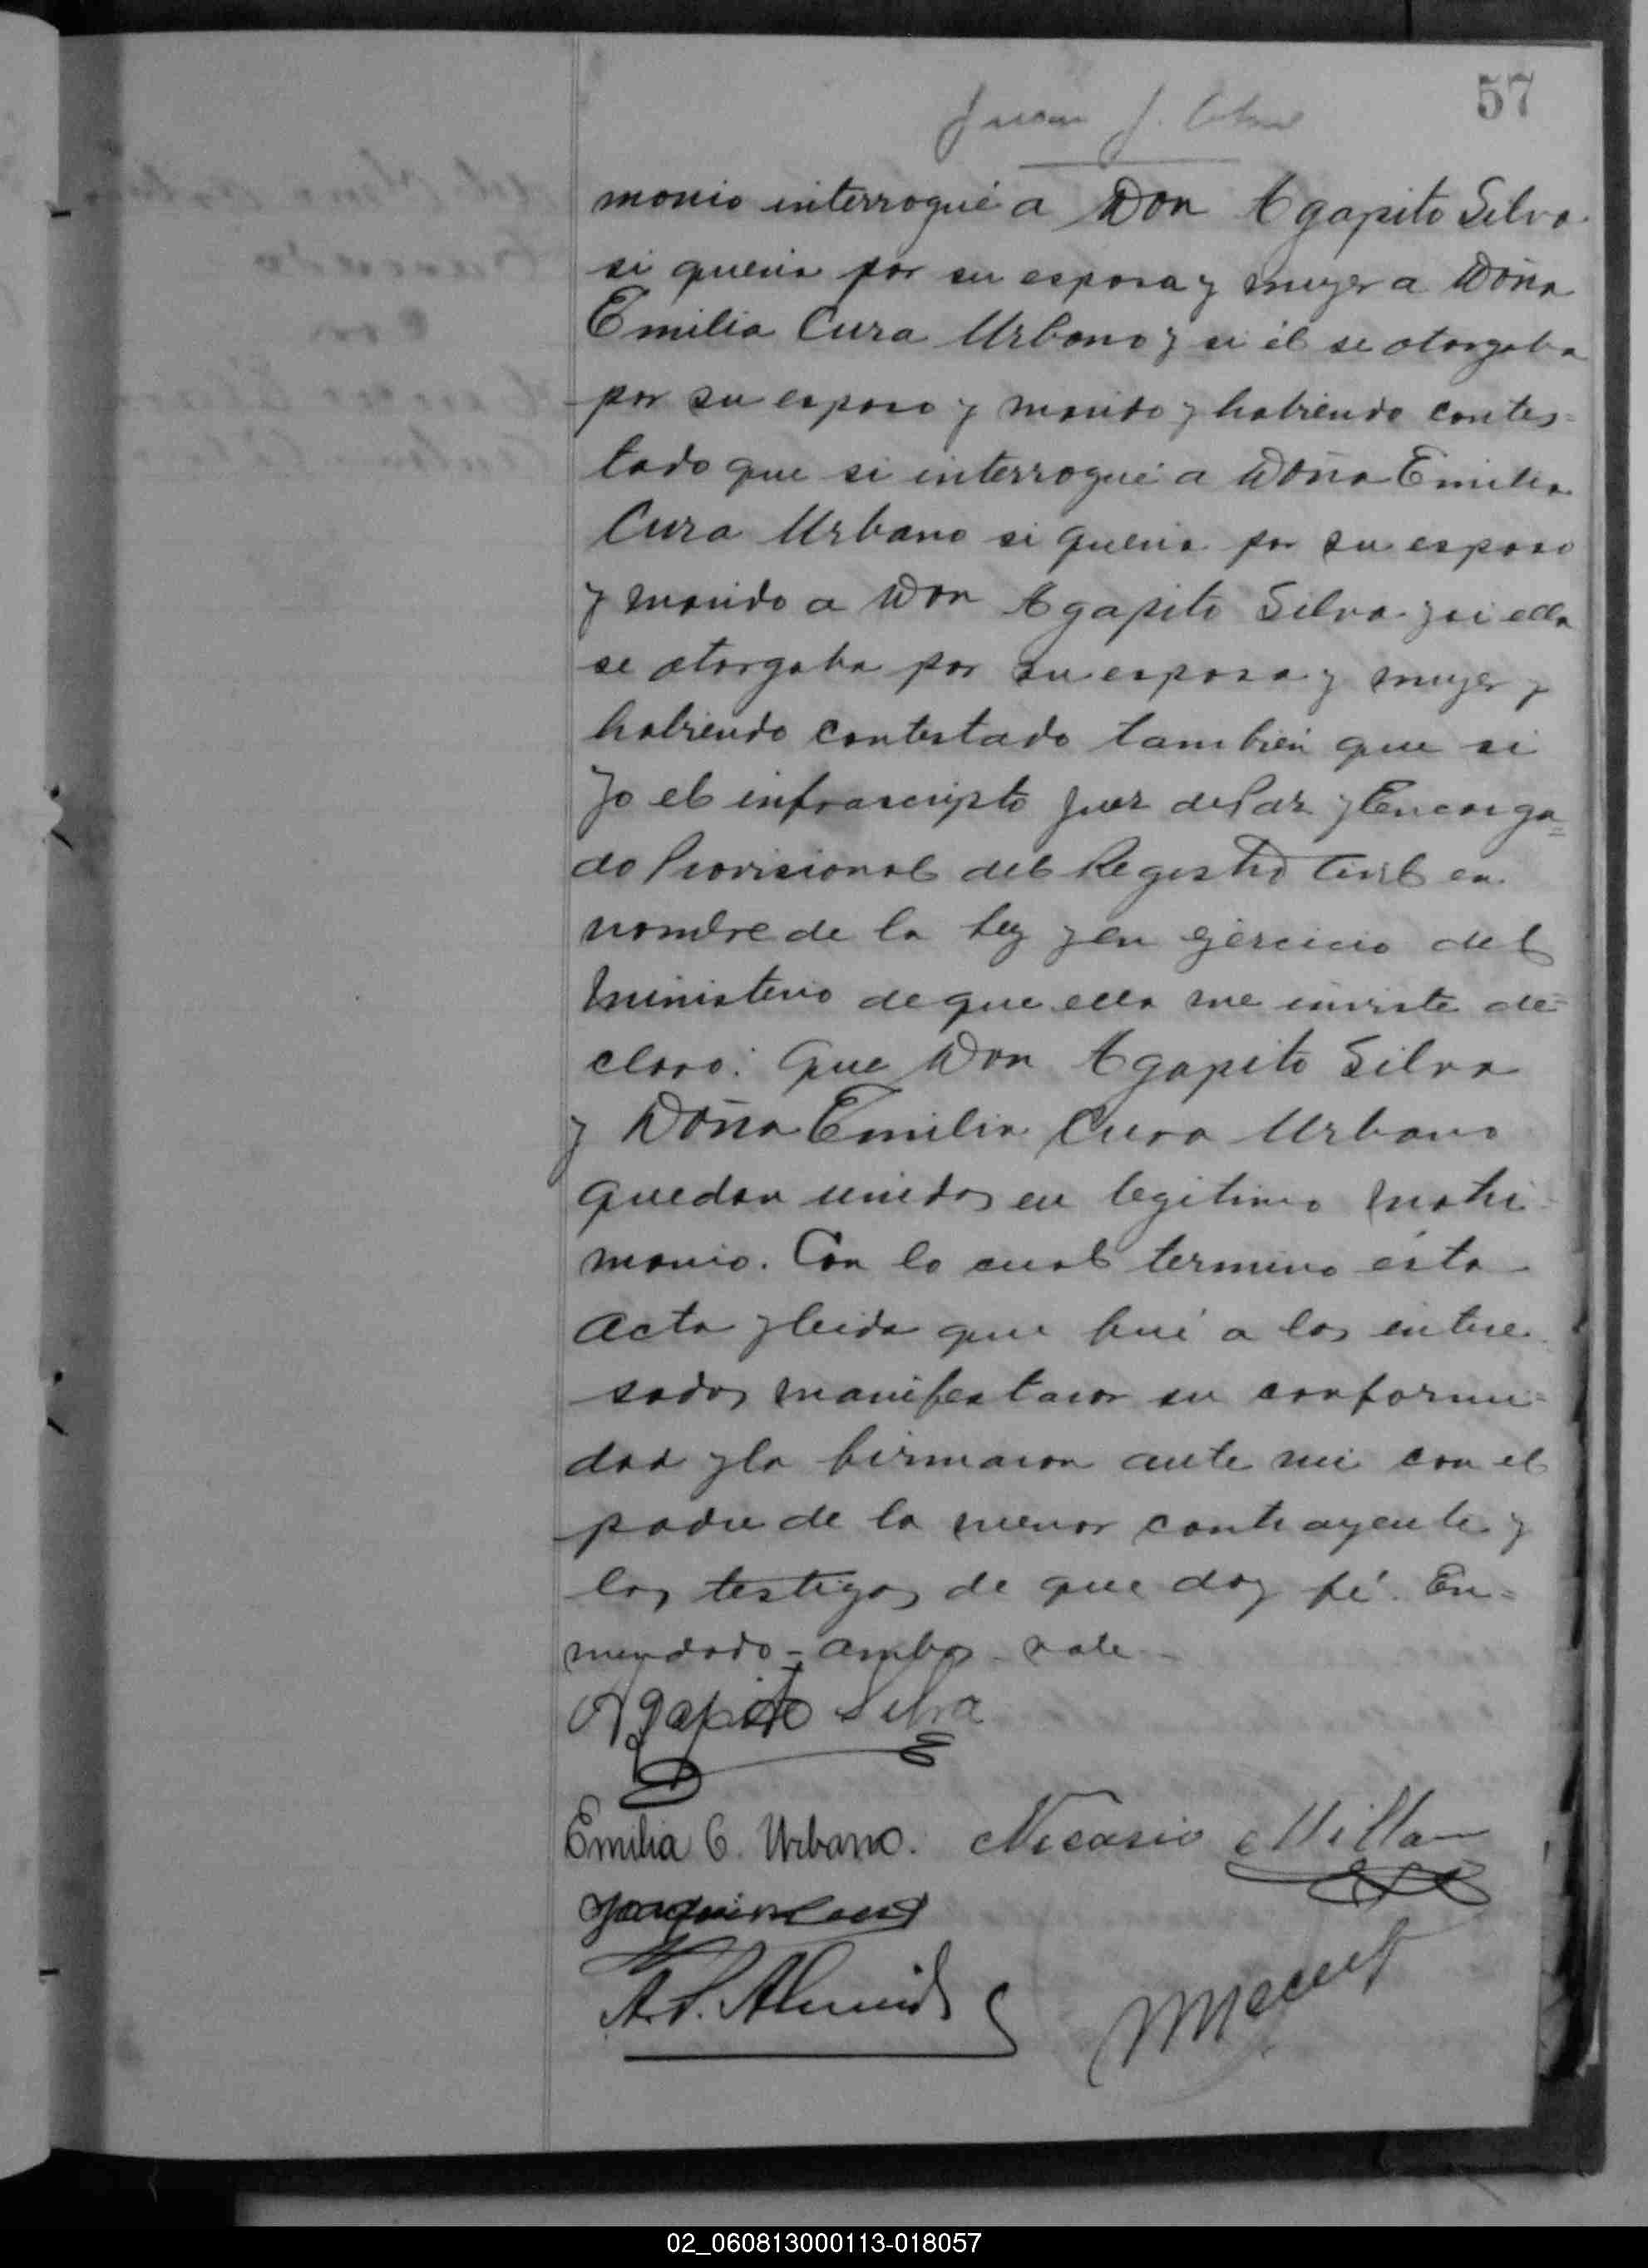 57
Juan J.
monio interrogué a Don Agapito Silva
si queria por su esposa y muger a Doña
Emilia Cura Urbano y si él se otorgaba
por su esposo y marido y habiendo contes=
tado que si interrogué a Doña Emilia
Cura Urbano si queria por su esposo
y marido a Don Agapito Silva y si ella
se otorgaba por su esposa y muger y
habiendo contestado también que si
Yo el infrascripto Juez de Paz y Encarga=
do Provisional del Registro Civil en
nombre de la Ley y en ejercicio del
Ministerio de que ella me inviste de=
claro: Que Don Agapito Silva
y Doña Emilia Cura Urbano
quedan unidos en legitimo matri-
monio. Con lo cual termino ésta
Acta y leida que fué a los intere-
sados manifestaron su conformi=
dad y la firmaron ante mi con el
padre de la menor contrayente y
los testigos de que doy fé. En=
mendado - ambos - vale -
Agapito Silva
Emilia C. Urbano. Nicasio Millan
Joaquin
A. S. Almeid
02_060813000113-018057